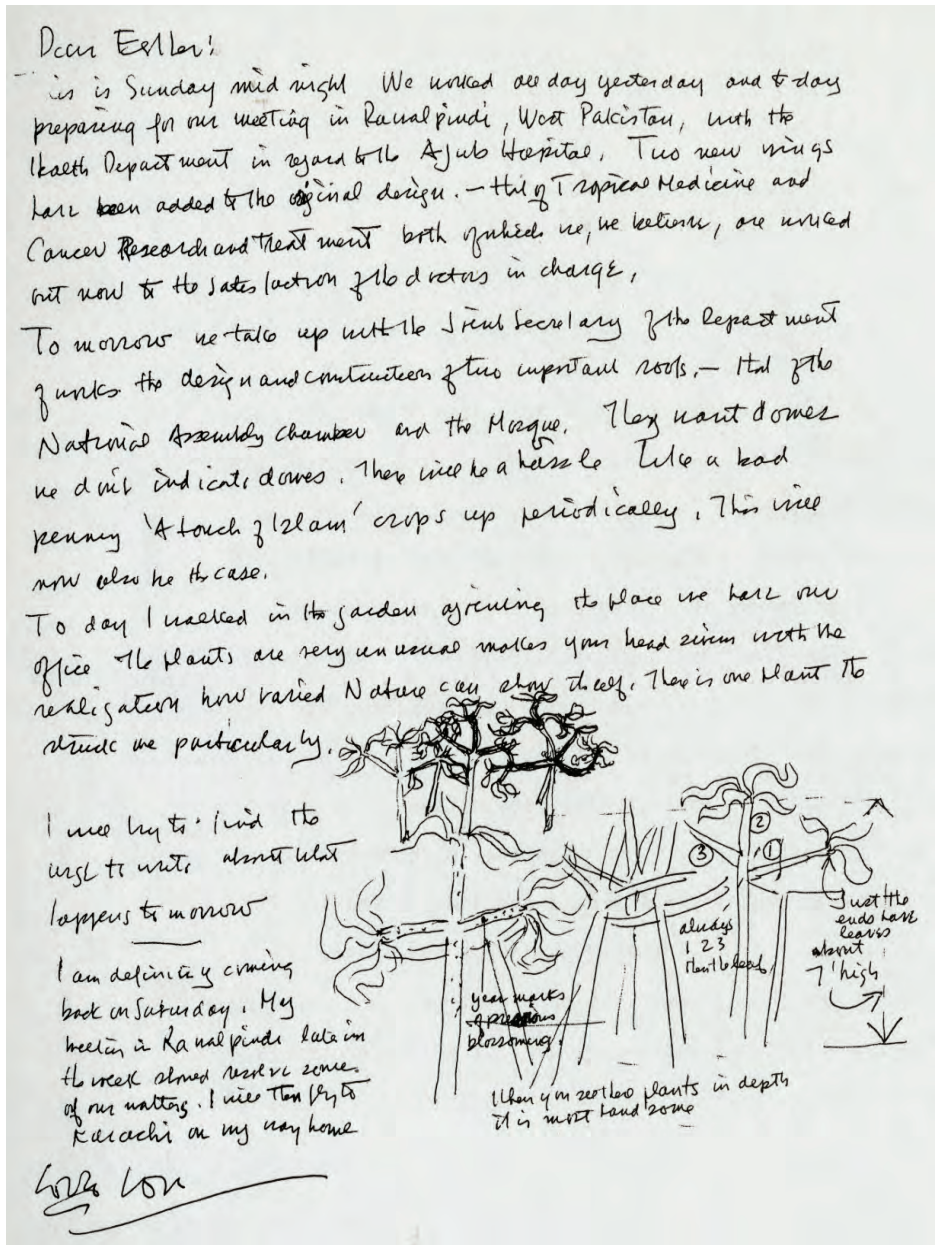 Dear Esther!
is is Sunday mid night We worked all day yesterday and to day
preparing for our meeting in Rawalpindi, West Pakistan, with the
Health Department in regard to the Ajub Hospital. Two new wings
have been added to the original design. – that of Tropical Medicine and
Cancer Research and Treatment both of which we, we believe, are worked
out now to the satisfaction of the doctors in charge,
To morrow we take up with the Joint Secretary of the Department
of works the design and construction of two important roofs, – that of the
National Assembly Chamber and the Mosque. They want domes
we don't indicate domes. There will be a hassle Like a bad
penny 'A touch of Islam' crops up periodically. This will
now also be the case.
To day I walked in the garden the place we have our
office The plants are very unusual makes your head swim with the
realization how varied Nature can show itself. There is one plant tht
struck me particularly.
I will try to find the
urge to write about what
happens to morrow
I am definitely coming
back on Saturday. My
meeting in Rawalpindi late in
the week should resolve some
of our matters. I will then fly to
Karachi on my way home
②
③ ①
Just the
ends have
leaves
about
7' high
always
1 2 3
then the leaf
year marks
of previous
blossoming.
When you see these plants in depth
it is most hand some
Lou